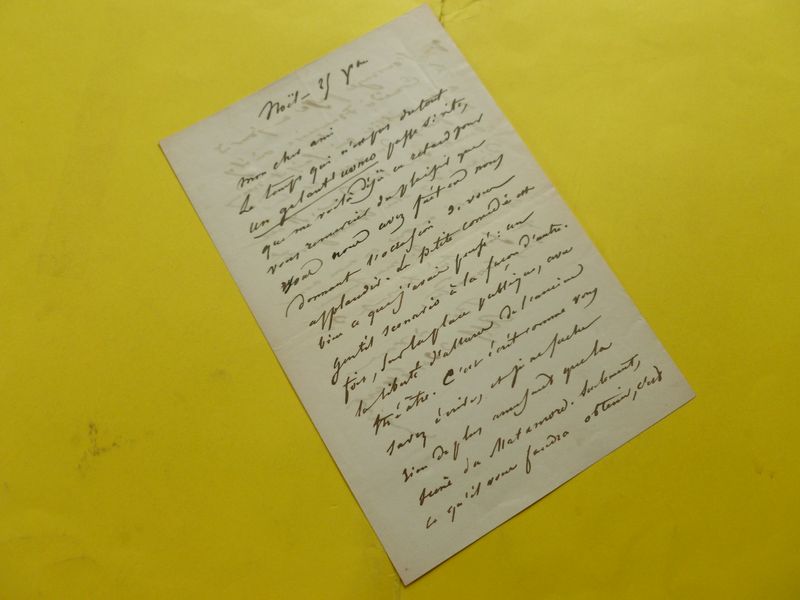 Noël - 25 Xbre
mon cher ami
Le temps qui n'est pas du tout
un galantuomo passe si vite,
que me voilà déjà en retard pour
vous remercier du plaisir que
vous nous avez fait en nous
donnant l'occasion de vous
applaudir. La petite comédie est
bien ce que j'avais pensé : un
gentil scenario à la façon d'autre
fois, sur la place publique, avec
la liberté d'allures de l'ancien
théâtre. C'est écrit comme vous
savez écrire, et je ne sache
rien de plus amusant que la
scène du Matamore. Seulement,
ce qu'il vous faudra obtenir, c'est